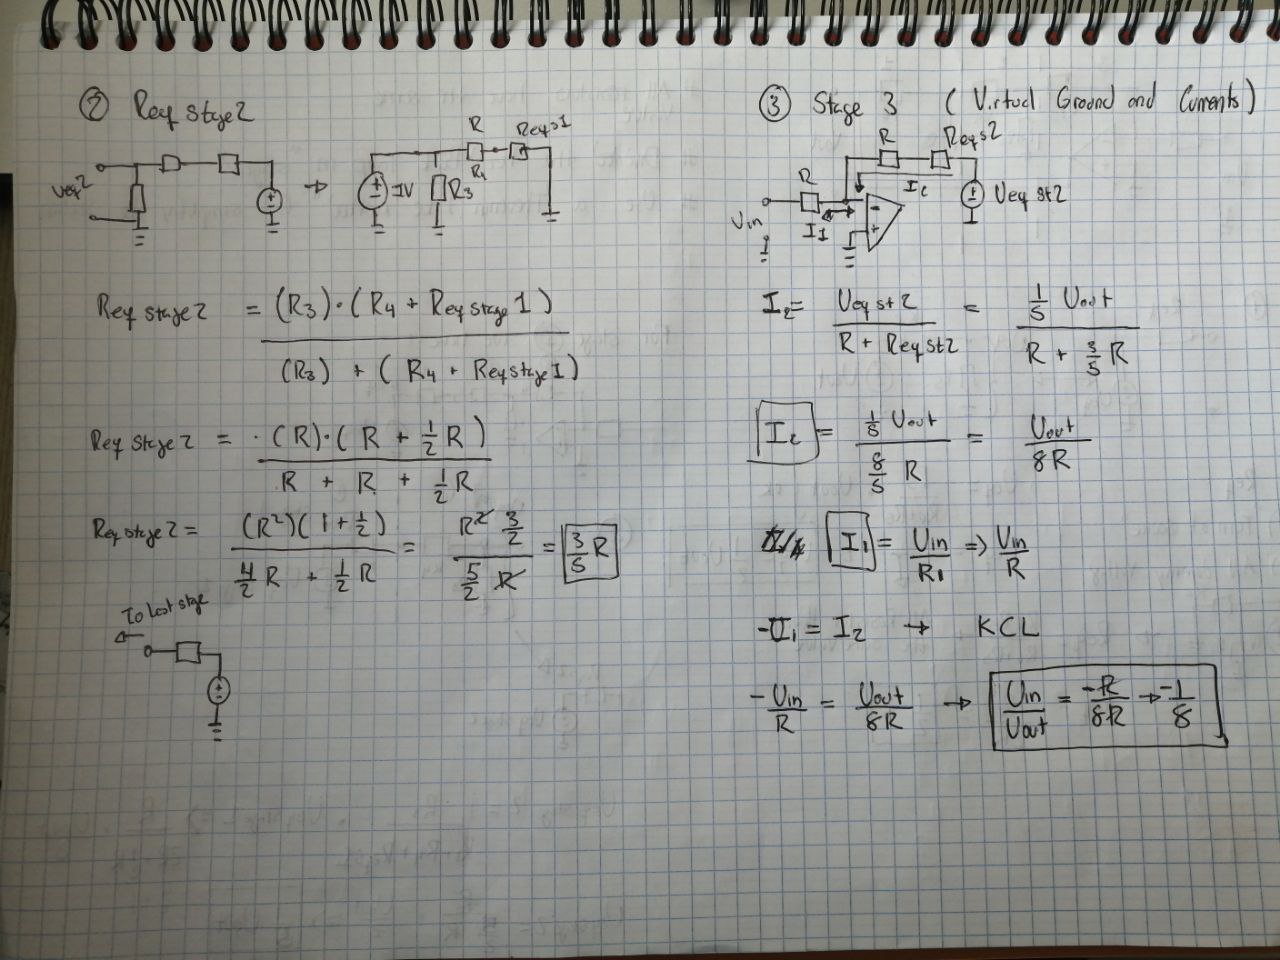 ② Req stage2
R
Reqs1
Veq2
1V
R3
R4
Req stage2 = (R3)·(R4 + Req stage 1) / (R3) + (R4 + Req stage 1)
Req stage 2 = ·(R)·(R + 1/2 R) / R + R + 1/2 R
Req stage 2 = (R²)(1 + 1/2) / 4/2 R + 1/2 R = R² 3/2 / 5/2 R = 3/5 R
To Last stage
③ Stage 3 (Virtual Ground and Currents)
R
Reqs2
R
I2
Vin
I1
Veq st2
I2 = Veq st2 / R + Req st2 = 1/5 Vout / R + 3/5 R
I2 = 1/5 Vout / 8/5 R = Vout / 8R
I1 = Vin / R1 => Vin / R
-I1 = I2 → KCL
- Vin / R = Vout / 8R → Vin / Vout = -R / 8R → -1 / 8